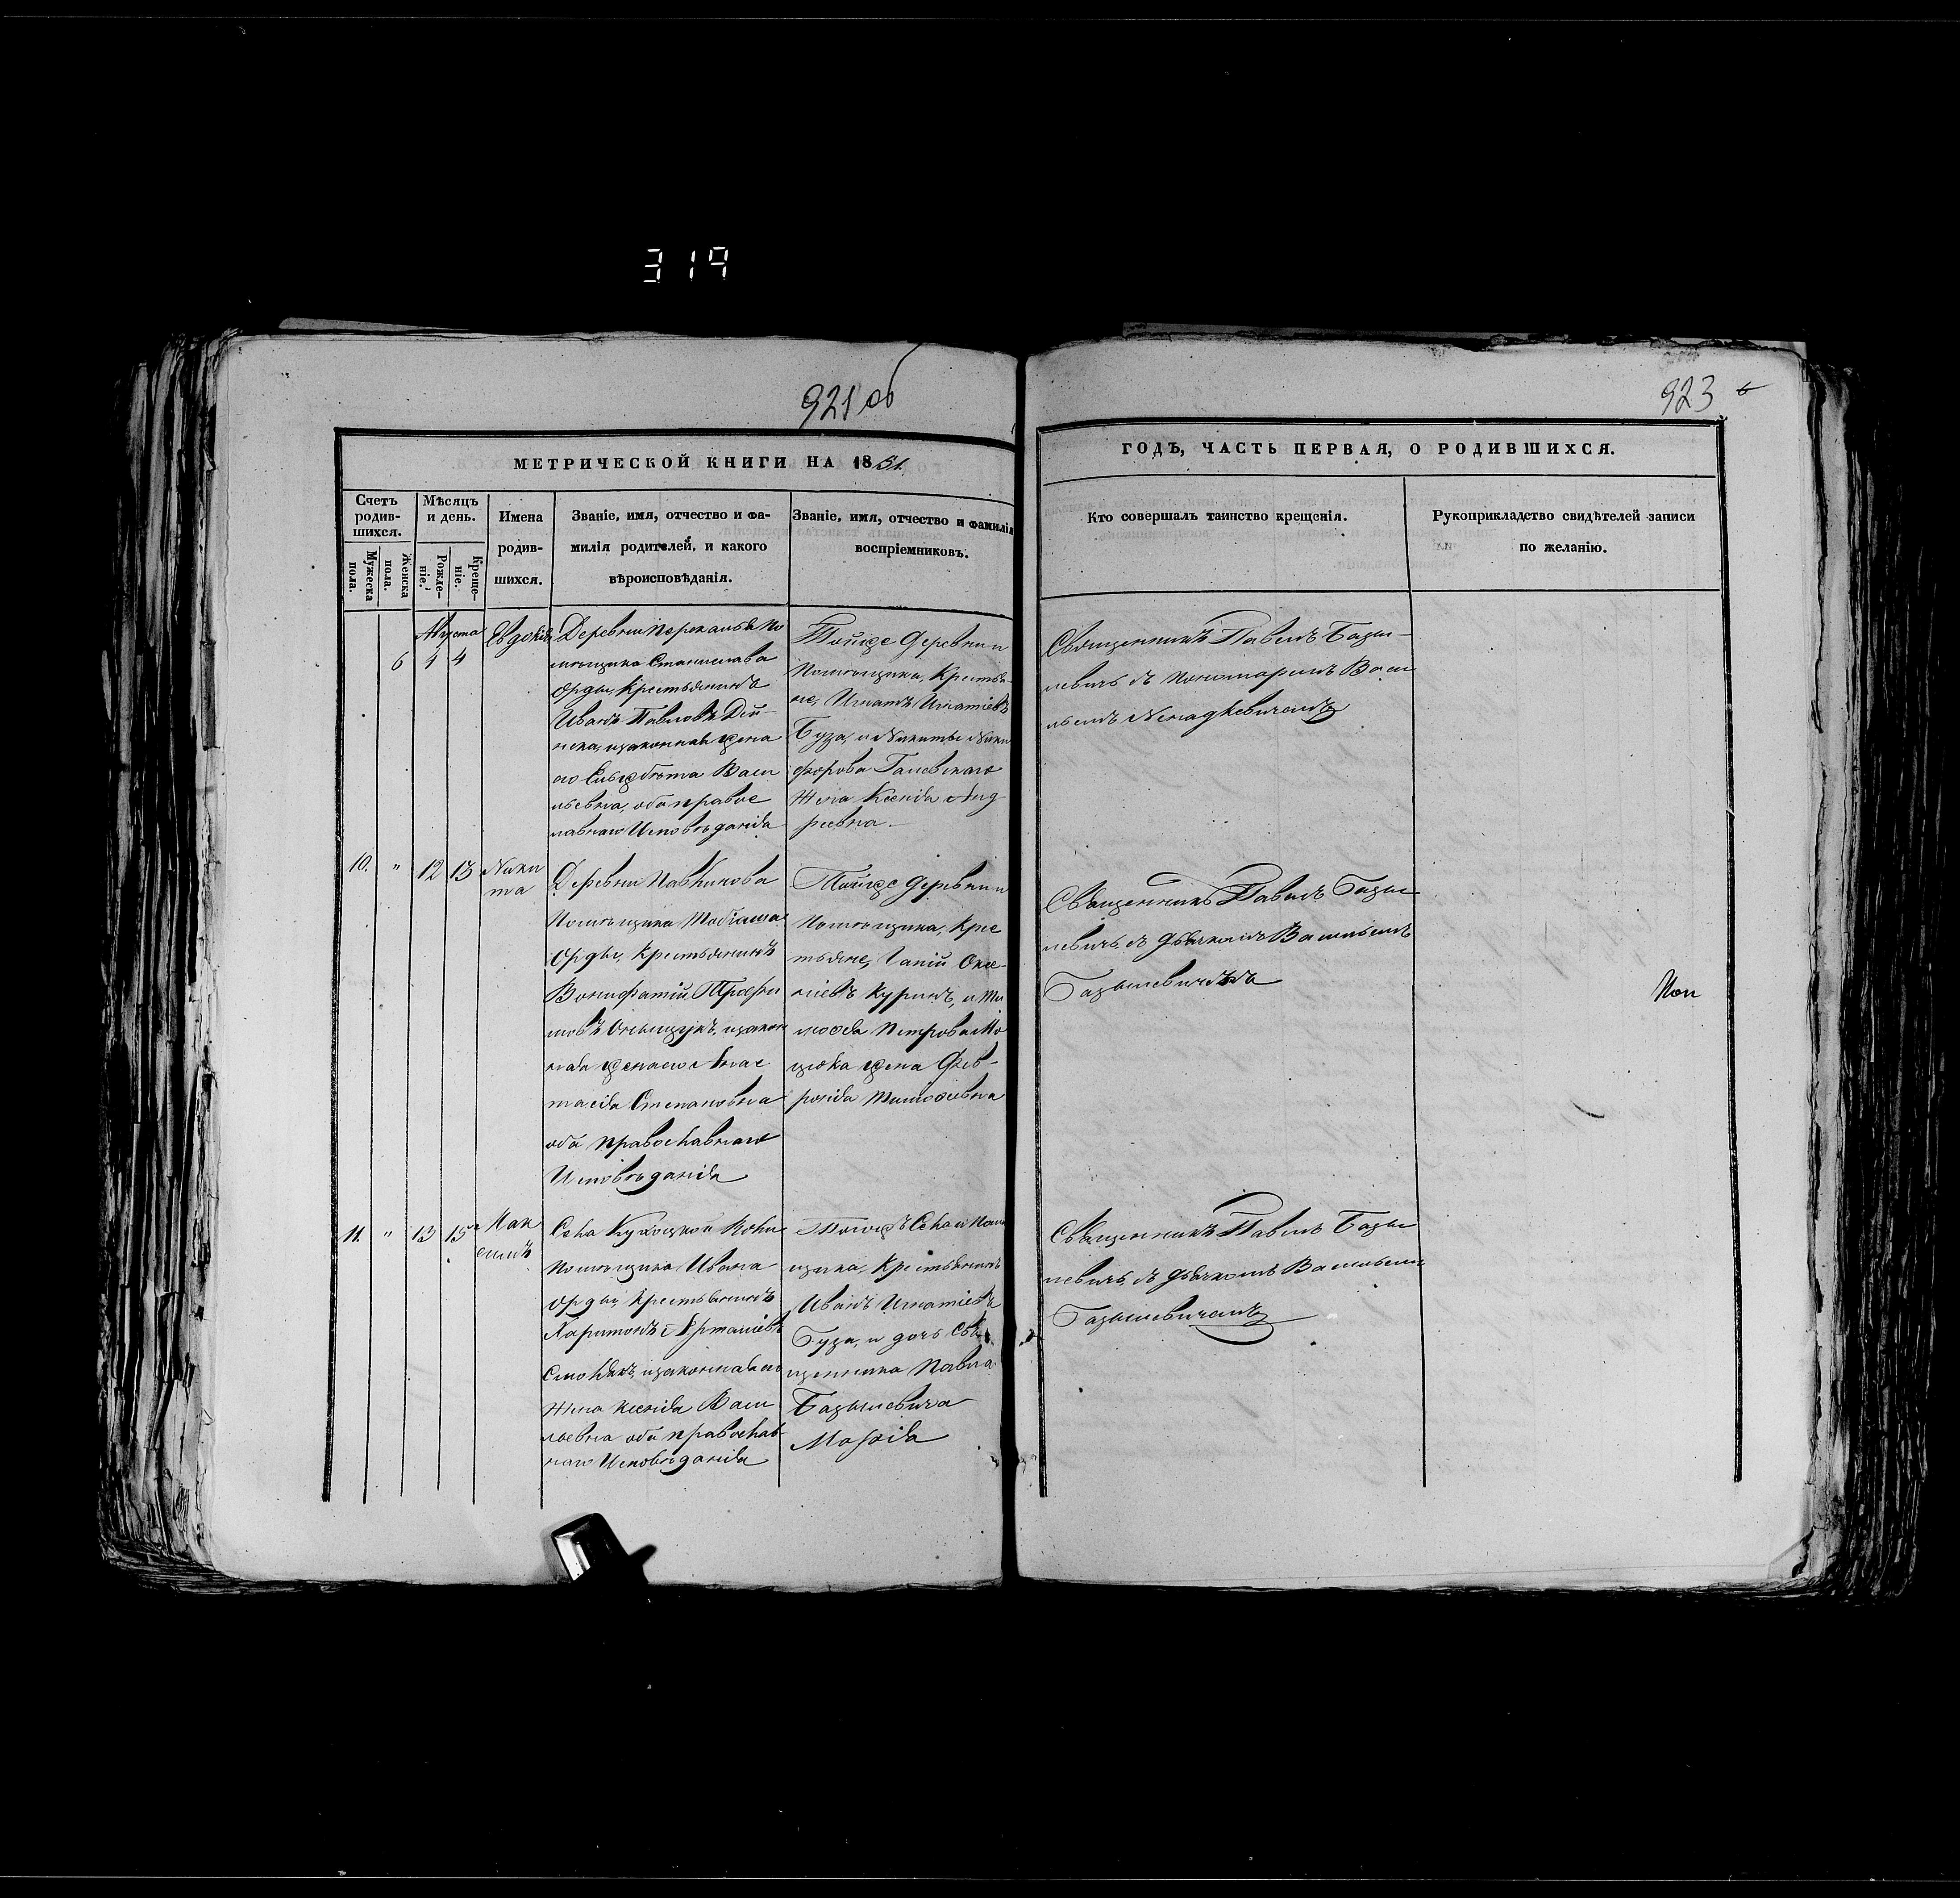 319
921 об
923
МЕТРИЧЕСКОЙ КНИГИ НА 1851
ГОДЪ, ЧАСТЬ ПЕРВАЯ, О РОДИВШИХСЯ.
Счетъ родив-шихся.
Мужеска пола.
Женска пола.
Мѣсяцъ и день.
Рожде-ніе.
Креще-ніе.
Имена
родив-
шихся.
Званіе, имя, отчество и фа-
милія родителей, и какого
вѣроисповѣданія.
Званіе, имя, отчество и фамилія
воспріемниковъ.
Кто совершалъ таинство крещенія.
Рукоприкладство свидѣтелей записи
по желанію.
Августа
6 4
Евдокія
Деревни по
мѣщика Станислава
Орды, Крестьянинъ
Иванъ Павловъ Дей-
нека, изаконная жена
его Елисавета Васи
льевна, оба правос
лавнаго Исповѣданія
Тойже деревни и
Помѣщика, Крестья-
не, Игнатъ Игнатіевъ
Буза, и Никиты Ники
форова
Жена Ксенія Анд
реевна.
Священникъ Павелъ Базы-
левичъ съ пономаремъ Васи
льемъ
10. " 12 13
Ники
та
Деревни
Помѣщика Тобіаша
Орды, Крестьянинъ
Вонифатій Трофи
мовъ изакон
ная жена его Анас
тасія Степановна
оба православнаго
Исповѣданія
Тойже деревни и
Помѣщика, Крес
тьяне,
Куринъ, и Ти
моѳея Петрова
жена Фев-
ронія Тимоѳеевна
Священникъ Павелъ Базы
левичъ съ дьячкомъ Васильемъ
Базылевичемъ
11. " 13 15
Мак
симъ
Села Кухоцкой Воли
Помѣщика Ивана
Орды, Крестьянинъ
Харитонъ
изаконная его
Жена Ксенія Васи
льевна оба православ-
наго Исповѣданія
Тогожъ Села и Помѣ
щика, Крестьянинъ
Иванъ Игнатіевъ
Буза, и дочь Свя
щенника Павла
Базылевича
Марія
Священникъ Павелъ Базы
левичъ, съ дьячкомъ Васильемъ
Базылевичемъ